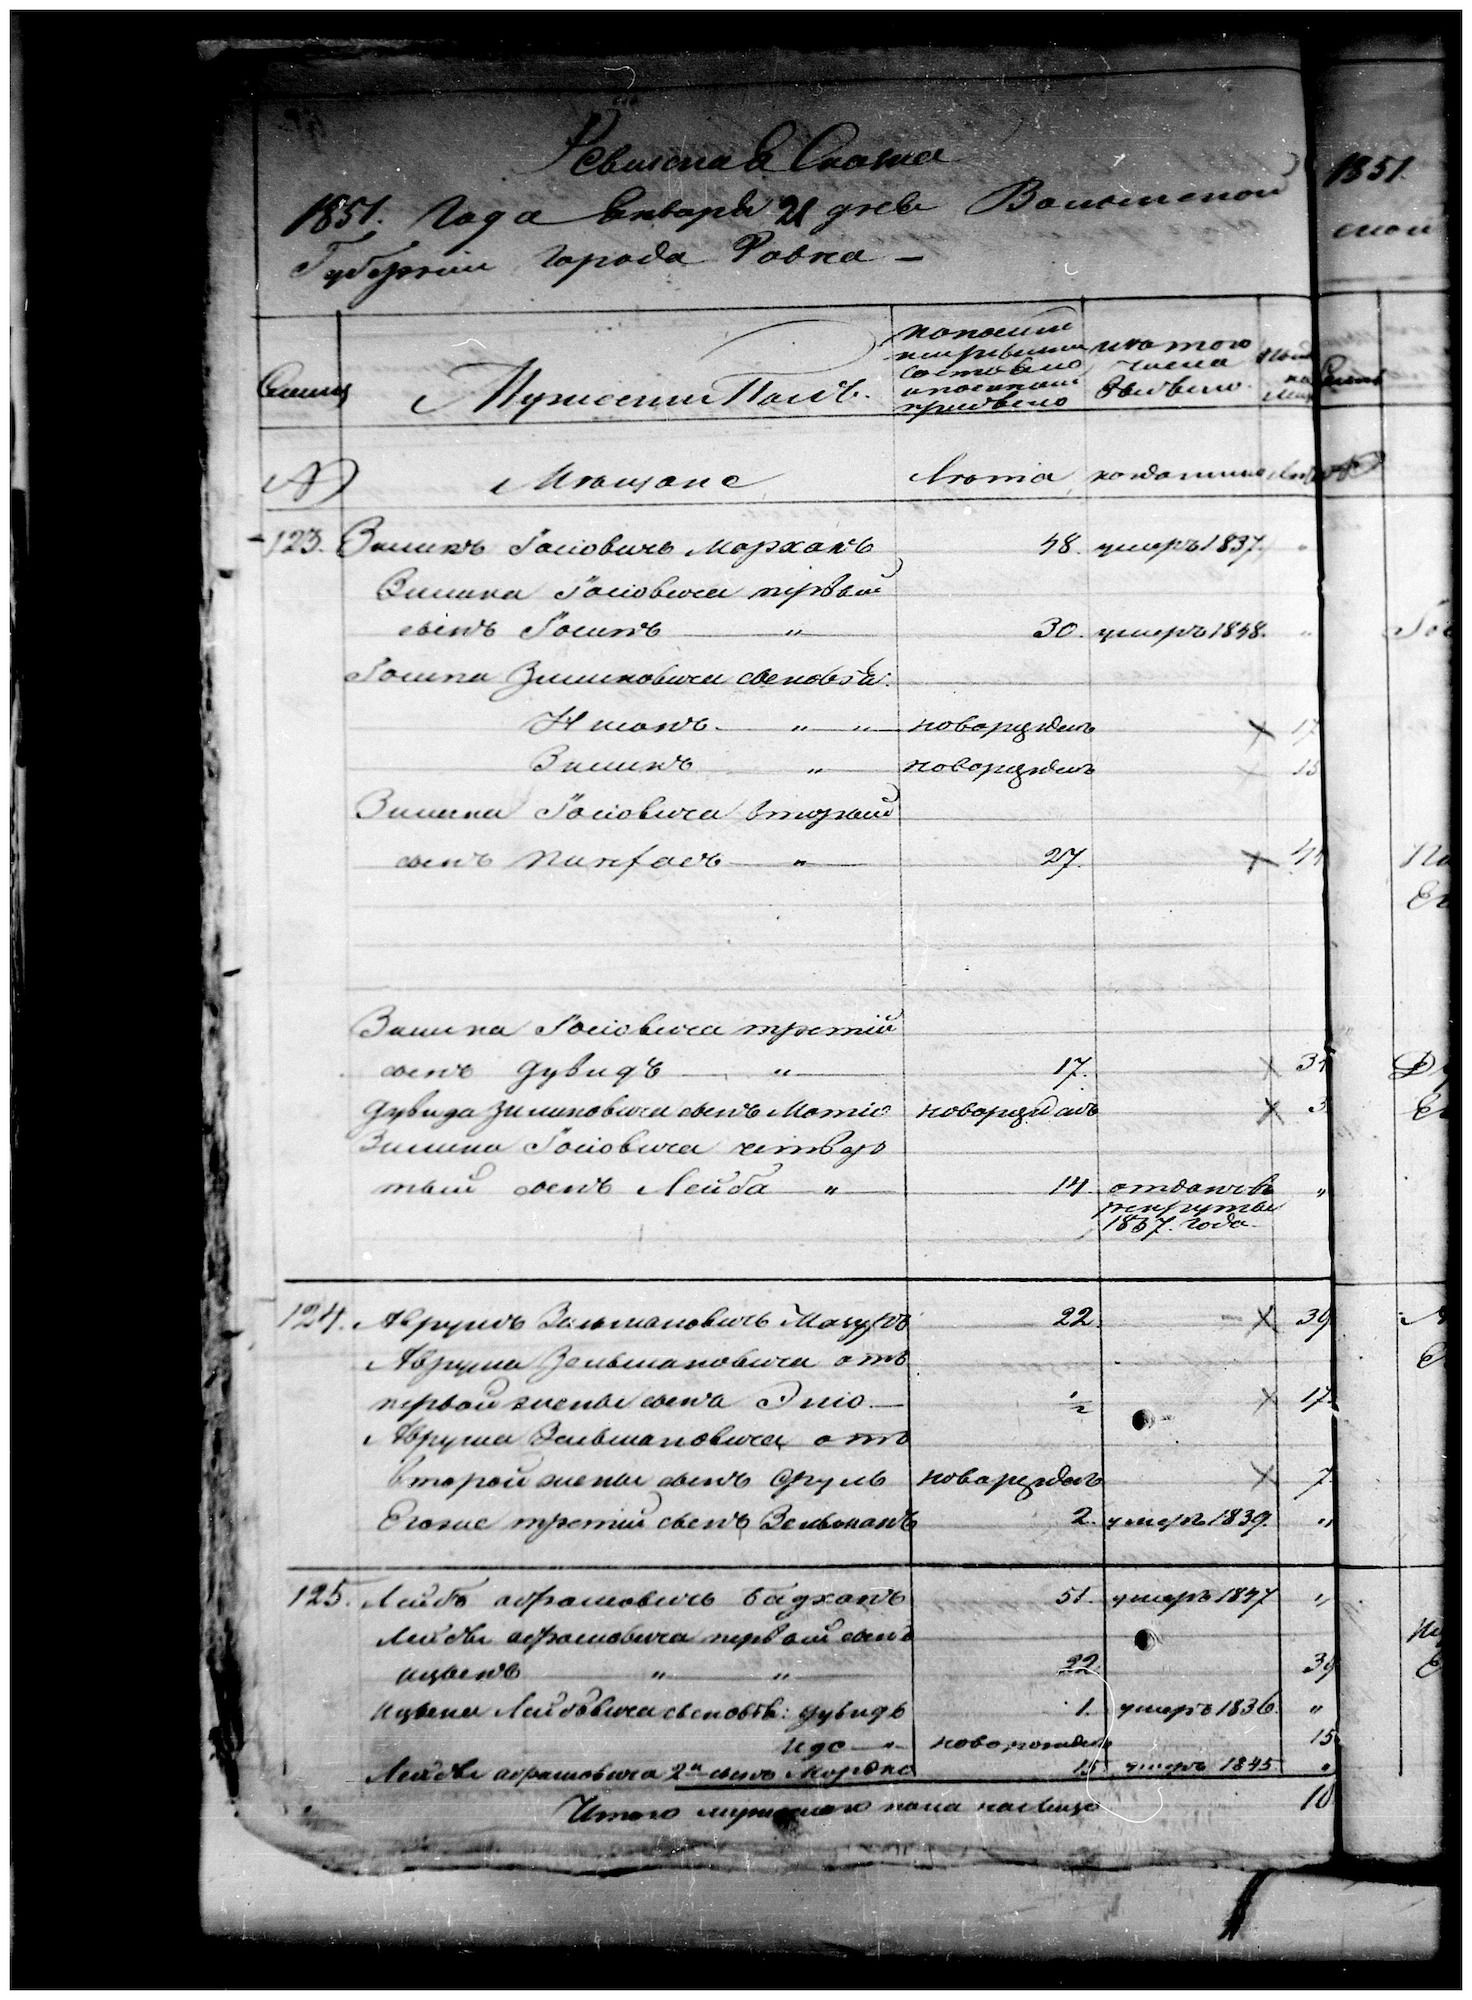 Ревизская Сказка
1851. Года Января 21 дня Волынской
Губернии Города Ровна —
Семьи
Мужеский Полъ.
по последней ревизии состояло и после того прибыло
Изъ того числа выбыло.
№
Мещане
Лета
когдаименно
123. Зимикъ Іосіовичъ Марханъ 48. умеръ 1837. "
Зимика Іосіовича первый
сынъ Іосипъ " 30. умеръ 1848. "
Іосипа Зимиковича сыновья:
" " новорожденъ × 17
Зимикъ " новорожденъ × 15
Зимика Іосіовича вторый
сынъ " 27. × 44
Зимика Іосіовича третій
сынъ Дувидъ " 17. × 34
Дувида Зимиковича сынъ Мотіо новорожденъ × 3
Зимика Іосіовича четвер
тый сынъ Лейба " 14. отданъ въ "
рекруты
1837. года
124. Аврумъ Зельмановичъ Мазуръ 22. × 39
Аврума Зельмановича отъ
первой жены сынъ Эліо — ½ × 17
Аврума Зельмановича отъ
второй жены сынъ Сруль новорожденъ × 7
Егоже третій сынъ Зельманъ 2. умеръ 1839. "
125. Лейба Абрамовичъ Бадханъ 51. умеръ 1847 "
Лейбы Абрамовича первый сынъ
Ицыкъ " " 22. 39
Ицыка Лейбовича сыновья: Дувидъ 1. умеръ 1836. "
Идс — " новорожденъ 15
Лейбы Абрамовича 2й сынъ Мордко 15 умеръ 1845 "
Итого мужеского пола налицо 10
1851.